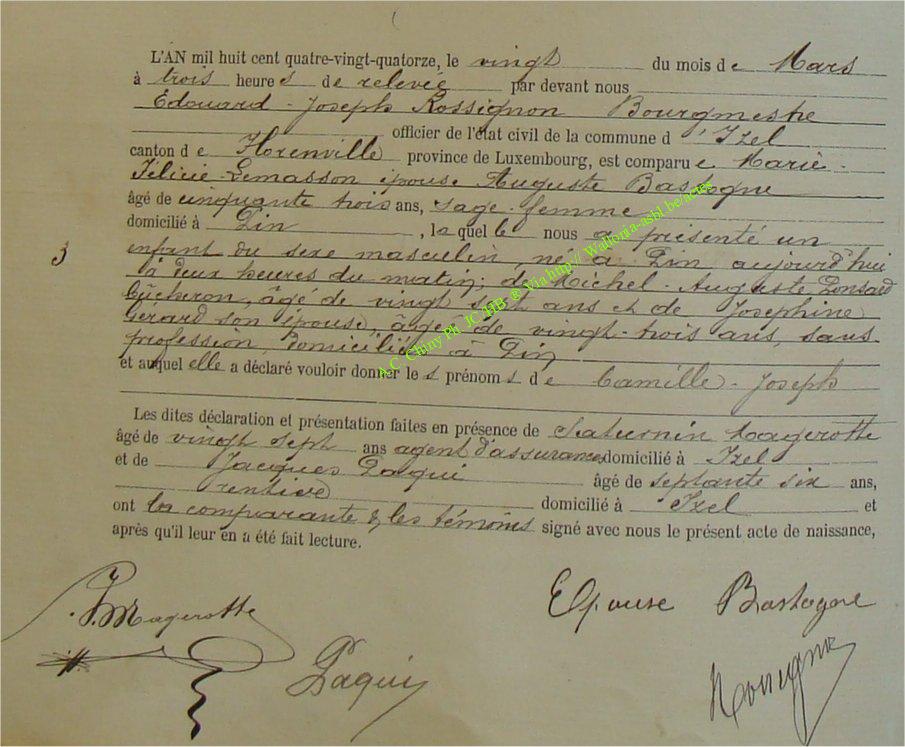 L'AN mil huit cent quatre-vingt-quatorze, le vingt du mois de Mars
à trois heures de relevée par devant nous
Edouard-Joseph Rossignon Bourgmestre
officier de l'état civil de la commune d'Izel
canton de Florenville province de Luxembourg, est comparue Marie-
Félicie Lemasson épouse Auguste Bastogne
âgé de cinquante trois ans, sage-femme
domicilié à Pin, laquelle nous a présenté un
3
enfant du sexe masculin, né à Pin aujourd'hui
à deux heures du matin; de Michel-Auguste Ponsard
bûcheron, âgé de vingt sept ans et de Joséphine
Gerard son épouse, âgée de vingt-trois ans, sans
profession, domiciliés à Pin
et auquel elle a déclaré vouloir donner les prénoms de Camille-Joseph
Les dites déclaration et présentation faites en présence de Saturnin Magerotte
âgé de vingt sept ans agent d'assurances domicilié à Izel
et de Jacques Paqui âgé de septante six ans,
rentier domicilié à Izel et
ont la comparante & les témoins signé avec nous le présent acte de naissance,
après qu'il leur en a été fait lecture.
Magerotte
Epouse Bastogne
Paqui
Rossignon
A.C Chiny Ph JC HB @ Via http:// Wallonia-asbl.be/actes